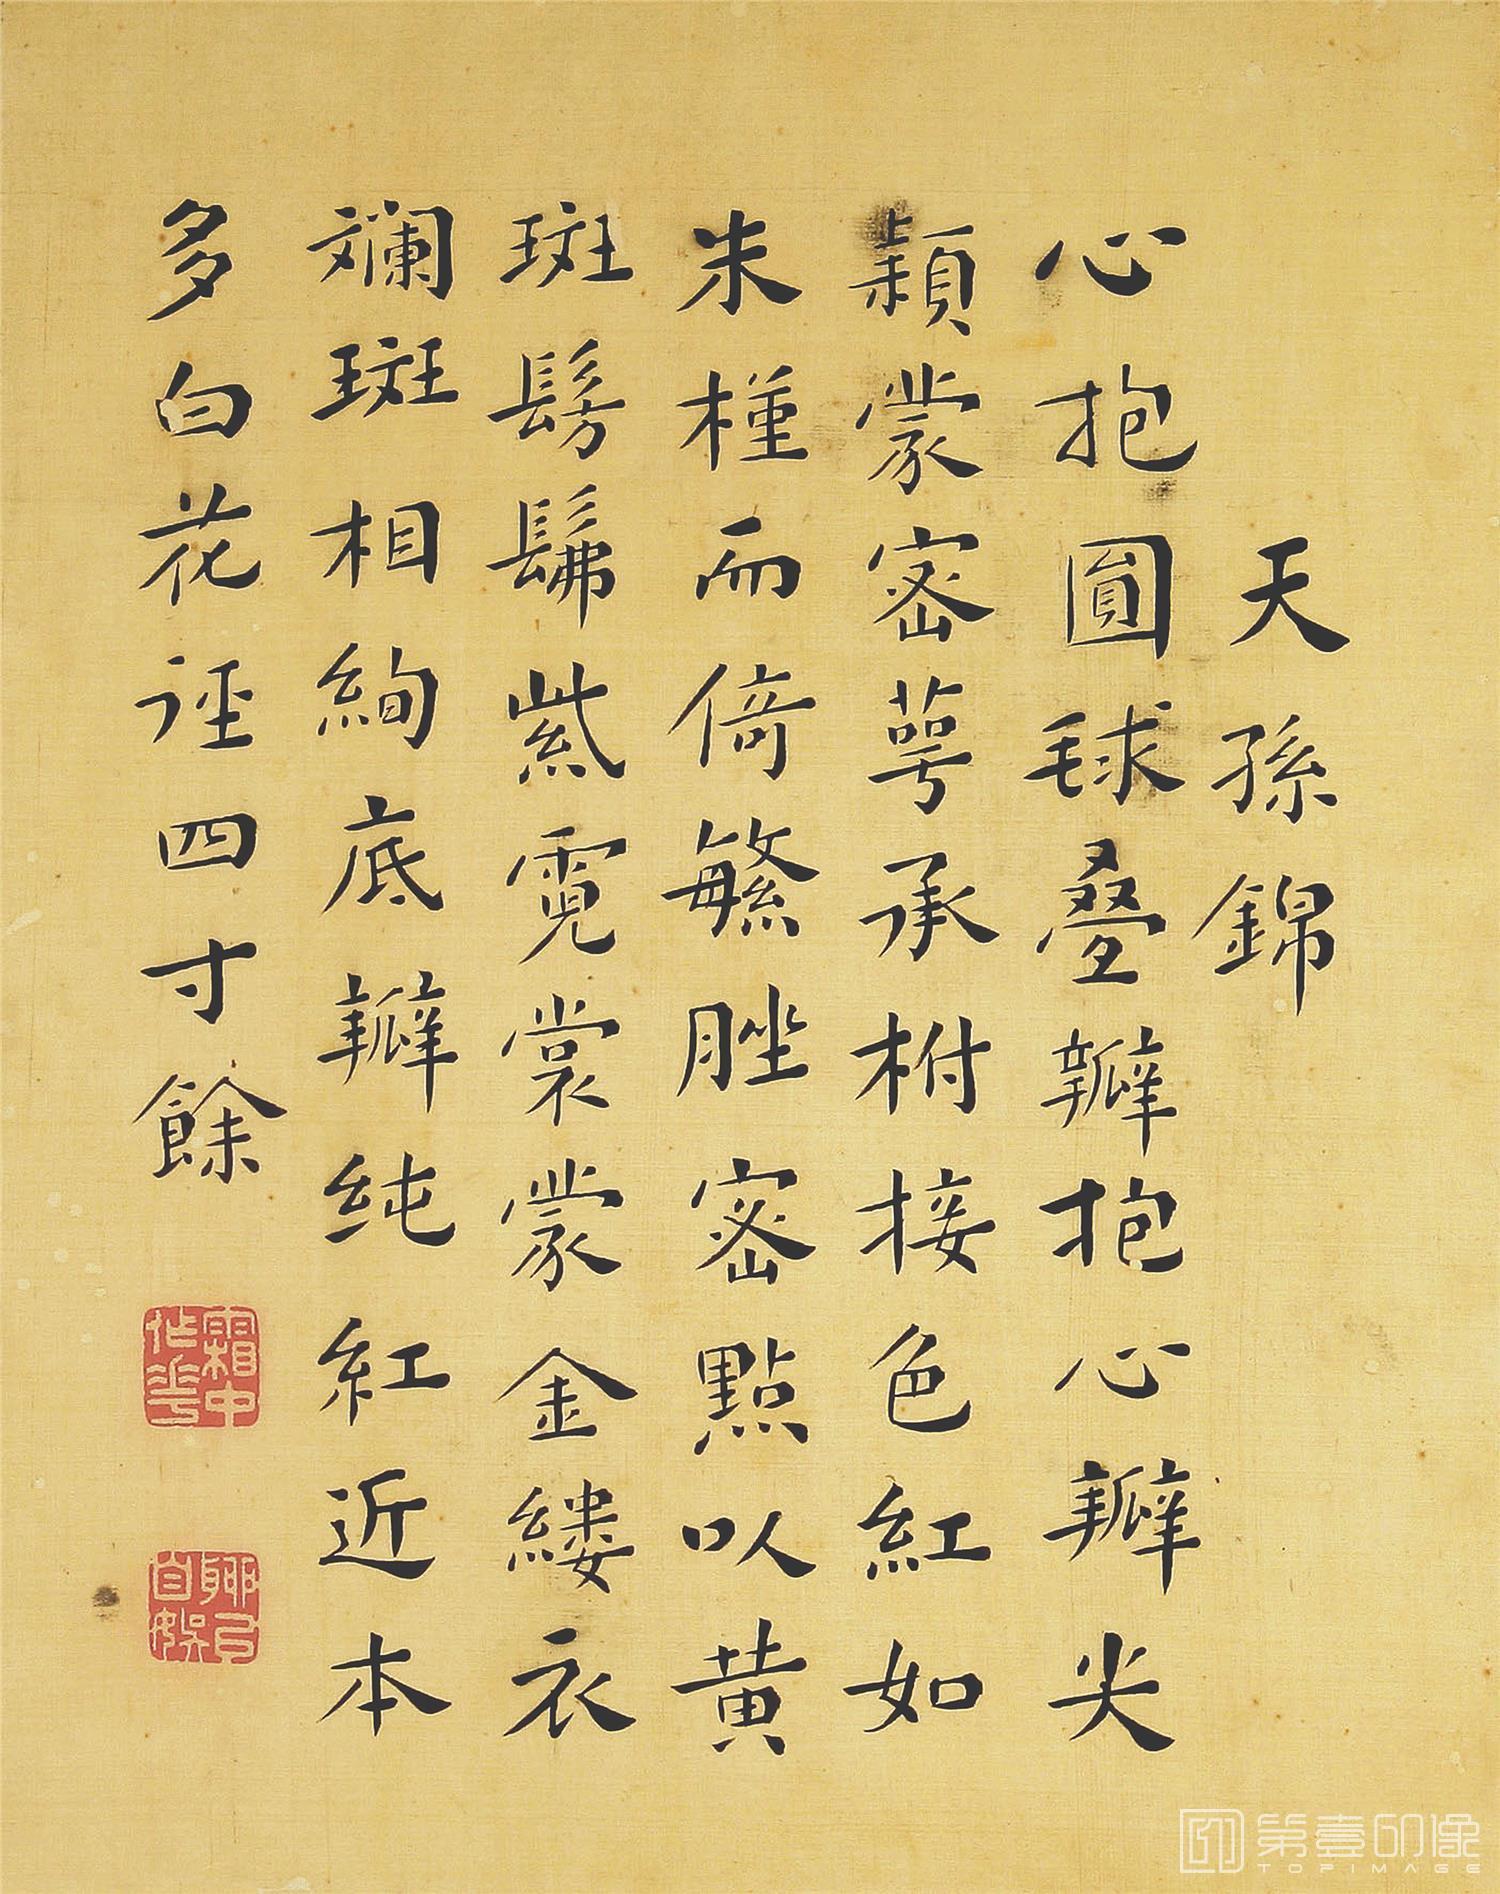 天孫錦
心抱圓球疊瓣抱心瓣尖
穎蒙密萼承柎接色紅如
朱槿而倚繁脞密點以黃
斑髣髴紫霓裳蒙金縷衣
斕斑相絢底瓣純紅近本
多白花徑四寸餘
霜中作花
聊以自娛
第壹印像
TOPIMAGE